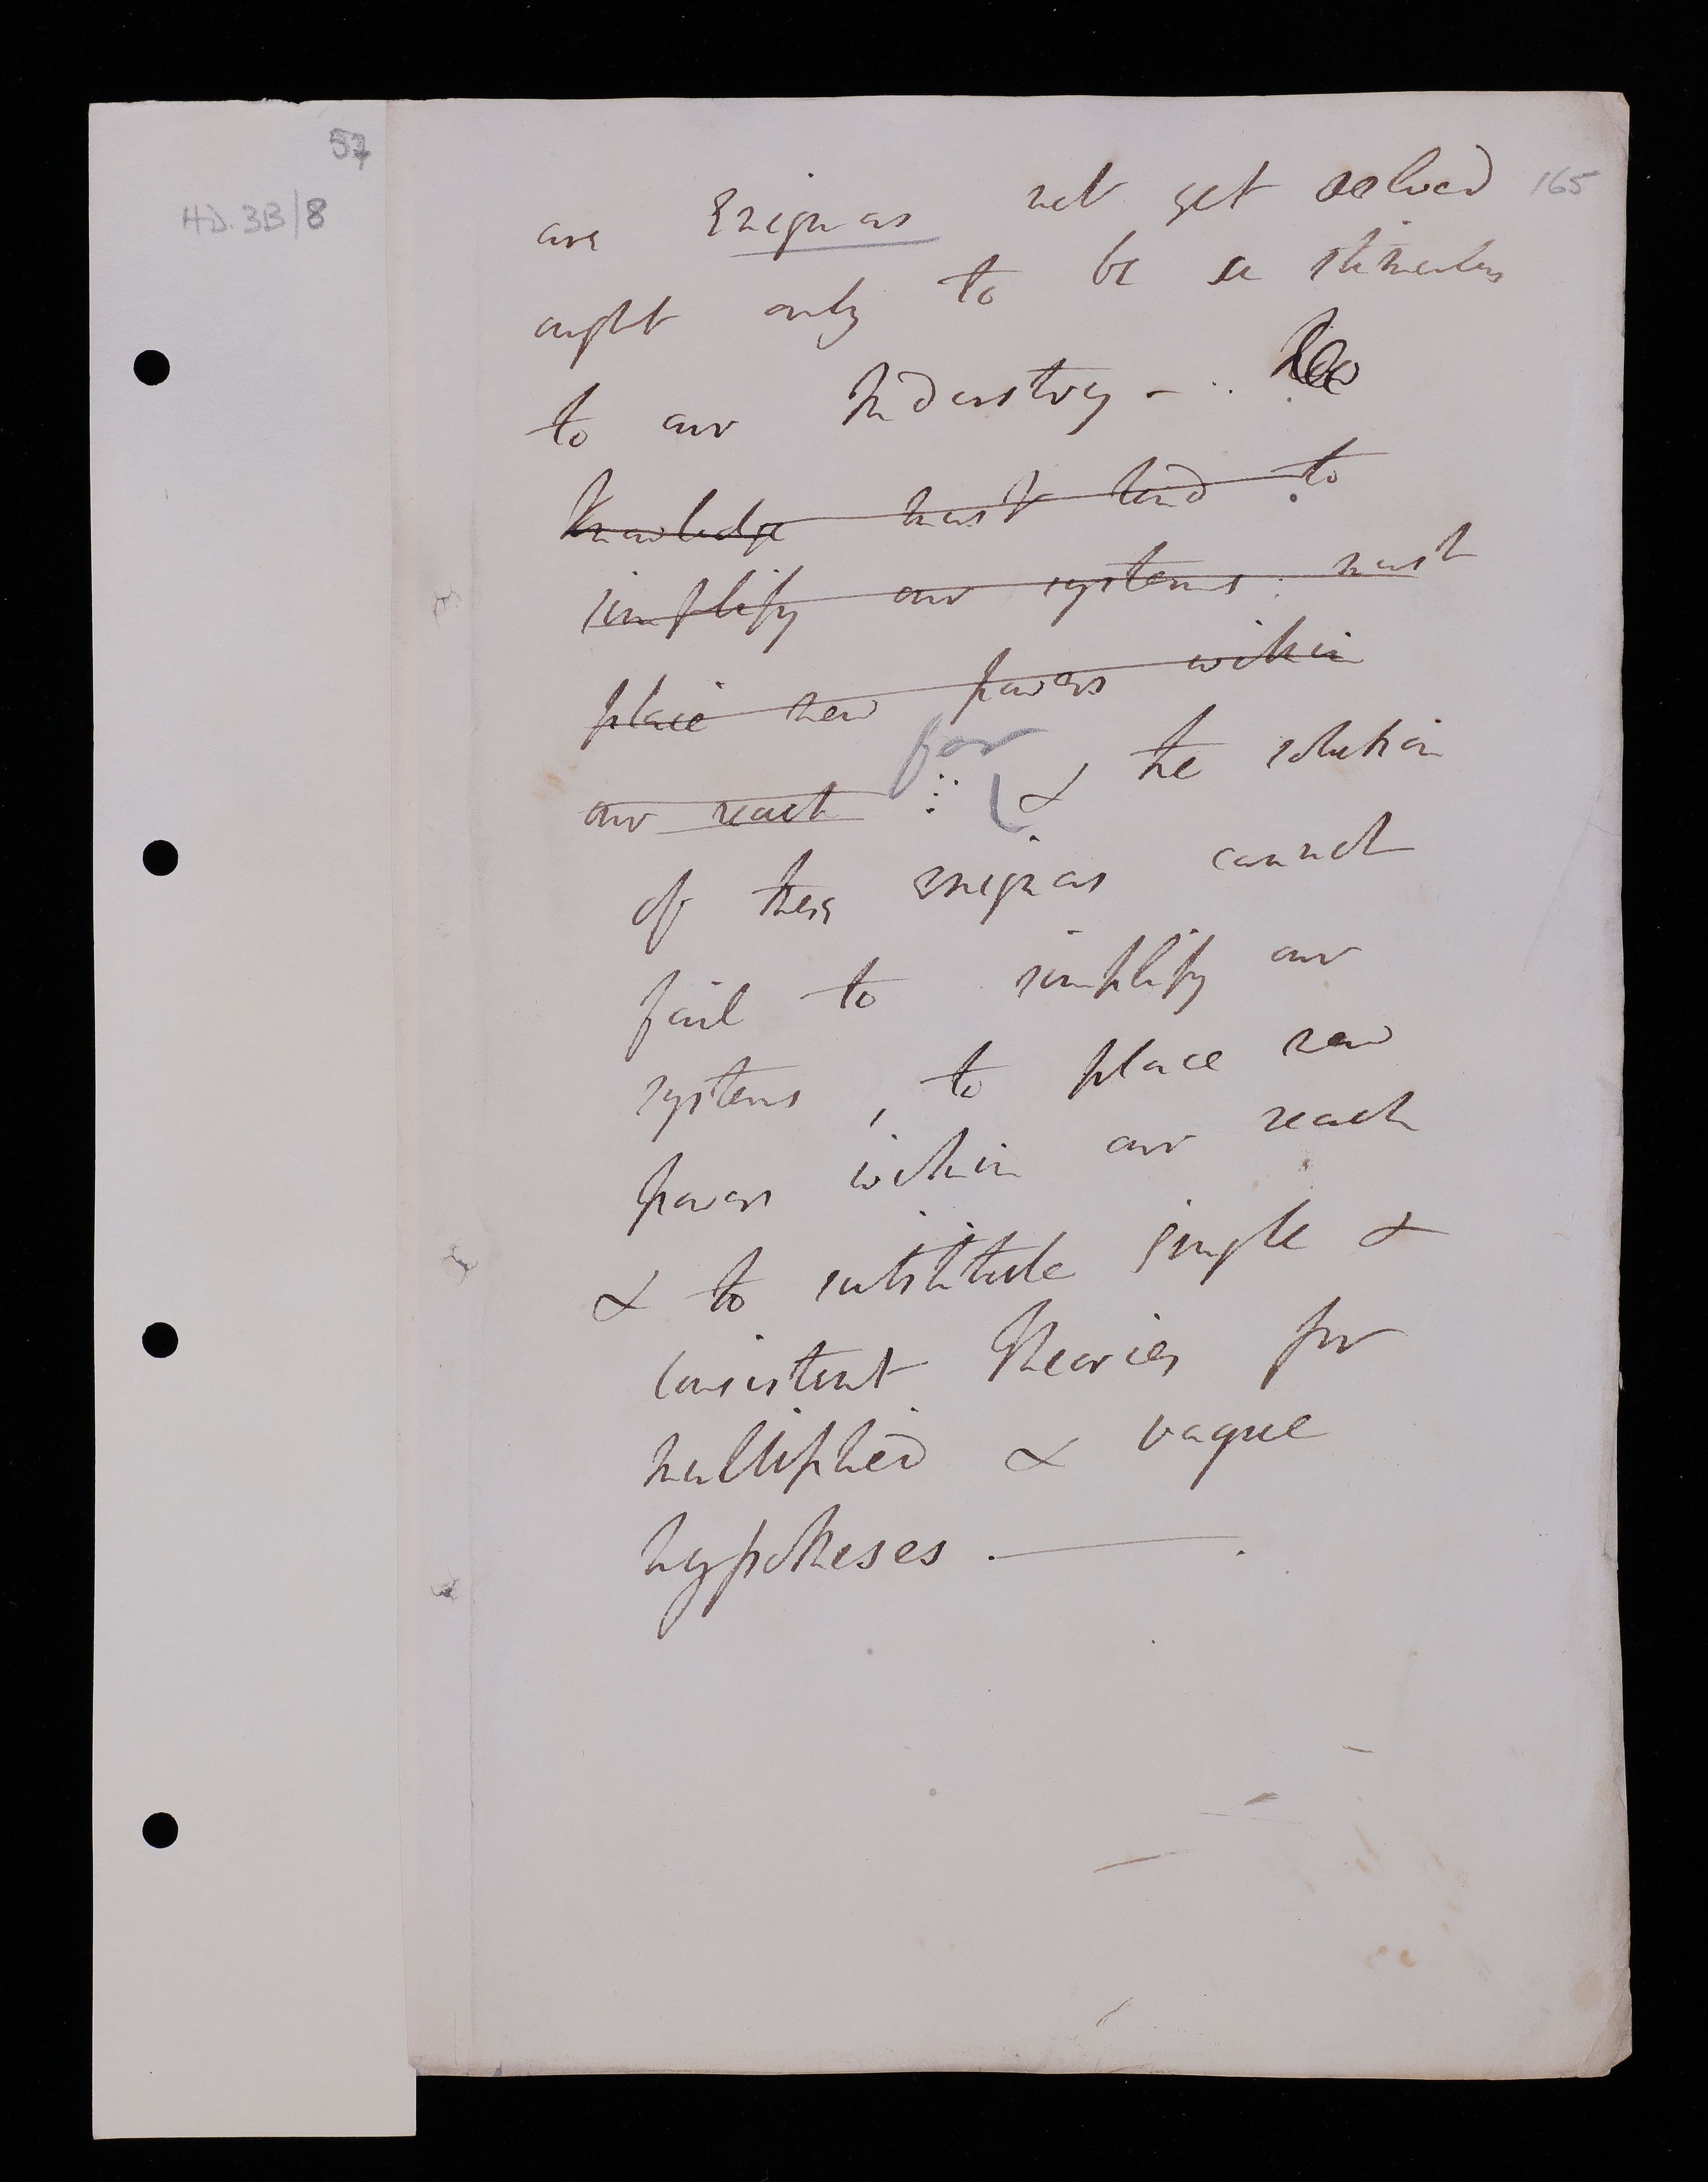 57
HD. 3B/8
165
are Enigmas not yet solved
ought only to be a stimulus
to our Industry -
Knowledge must tend to
simplify our systems: must
place new powers within
our reach for & the solution
of these enigmas cannot
fail to simplify our
systems, to place new
powers within our reach
& to substitute simple &
consistent Theories for
multiplied & vague
hypotheses. —